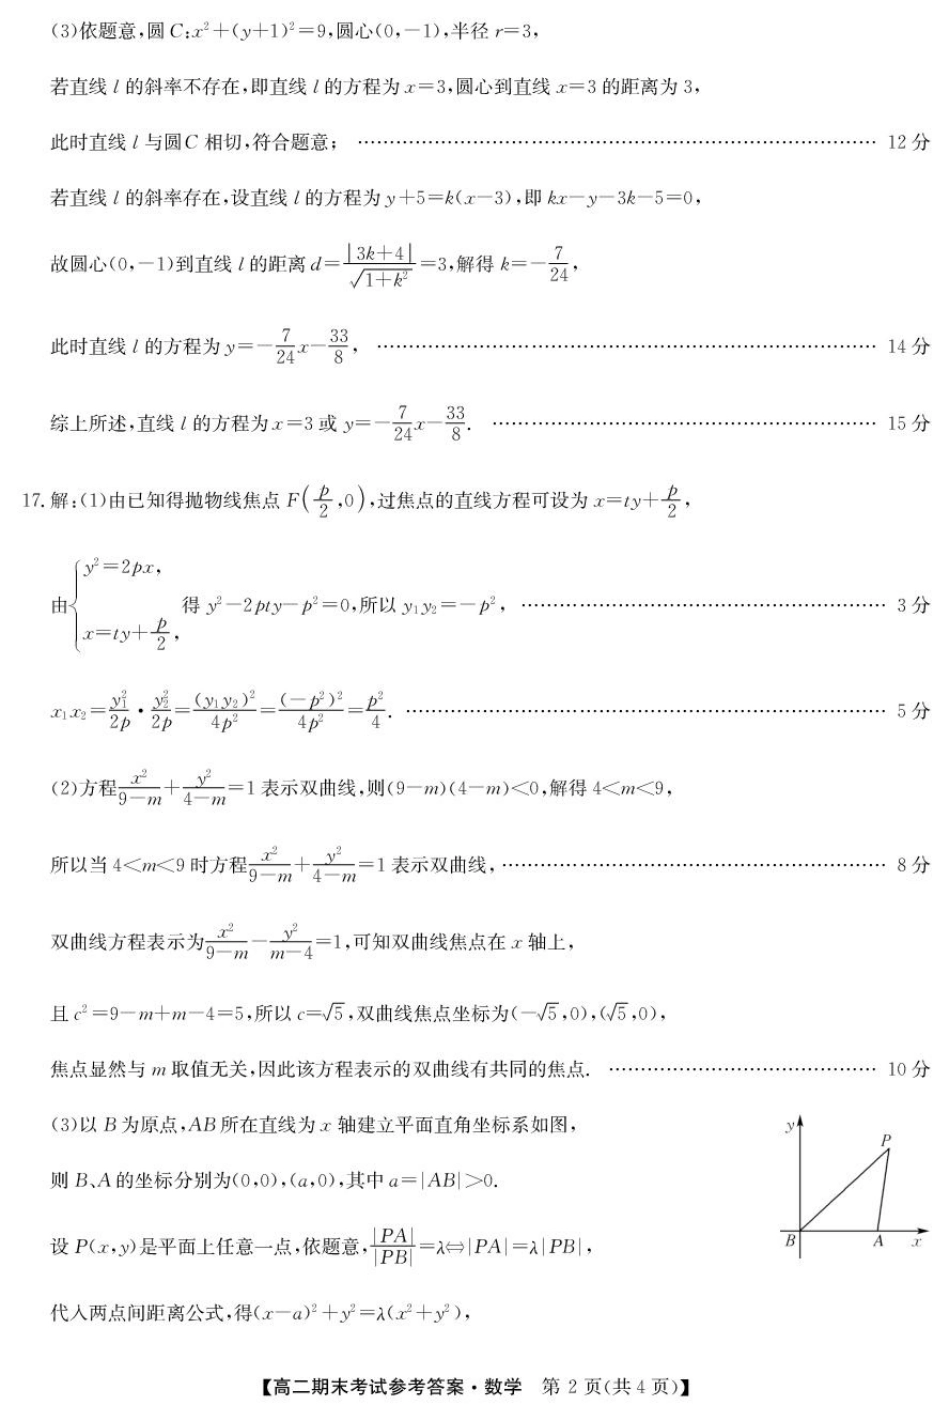 (3)依题意,圆 C:x²+(y+1)²=9,圆心(0,-1),半径 r=3,
若直线 l 的斜率不存在,即直线 l 的方程为 x=3,圆心到直线 x=3 的距离为 3,
此时直线 l 与圆C 相切,符合题意; …………………………………………………… 12 分
若直线 l 的斜率存在,设直线 l 的方程为 y+5=k(x-3),即 kx-y-3k-5=0,
故圆心(0,-1)到直线 l 的距离 d=|3k+4|/√(1+k²)=3,解得 k=-7/24,
此时直线 l 的方程为 y=-7/24x-33/8, …………………………………………………… 14 分
综上所述,直线 l 的方程为 x=3 或 y=-7/24x-33/8. ………………………………………… 15 分
17. 解:(1)由已知得抛物线焦点 F(p/2,0),过焦点的直线方程可设为 x=ty+p/2,
由{y²=2px, x=ty+p/2, 得 y²-2pty-p²=0,所以 y₁y₂=-p², ……………………………………… 3 分
x₁x₂=y₁²/2p·y₂²/2p=(y₁y₂)²/4p²=(-p²)²/4p²=p²/4. …………………………………………………… 5 分
(2)方程x²/(9-m)+y²/(4-m)=1 表示双曲线,则(9-m)(4-m)<0,解得 4<m<9,
所以当 4<m<9 时方程x²/(9-m)+y²/(4-m)=1 表示双曲线, ……………………………………… 8 分
双曲线方程表示为x²/(9-m)-y²/(m-4)=1,可知双曲线焦点在 x 轴上,
且 c²=9-m+m-4=5,所以 c=√5,双曲线焦点坐标为(-√5,0),(√5,0),
焦点显然与 m 取值无关,因此该方程表示的双曲线有共同的焦点. …………………………… 10 分
(3)以 B 为原点,AB 所在直线为 x 轴建立平面直角坐标系如图,
则 B、A 的坐标分别为(0,0),(a,0),其中 a=|AB|>0.
设 P(x,y)是平面上任意一点,依题意,|PA|/|PB|=λ⇔|PA|=λ|PB|,
代入两点间距离公式,得(x-a)²+y²=λ(x²+y²),
y
P
B
A
x
【高二期末考试参考答案·数学 第 2 页(共 4 页)】